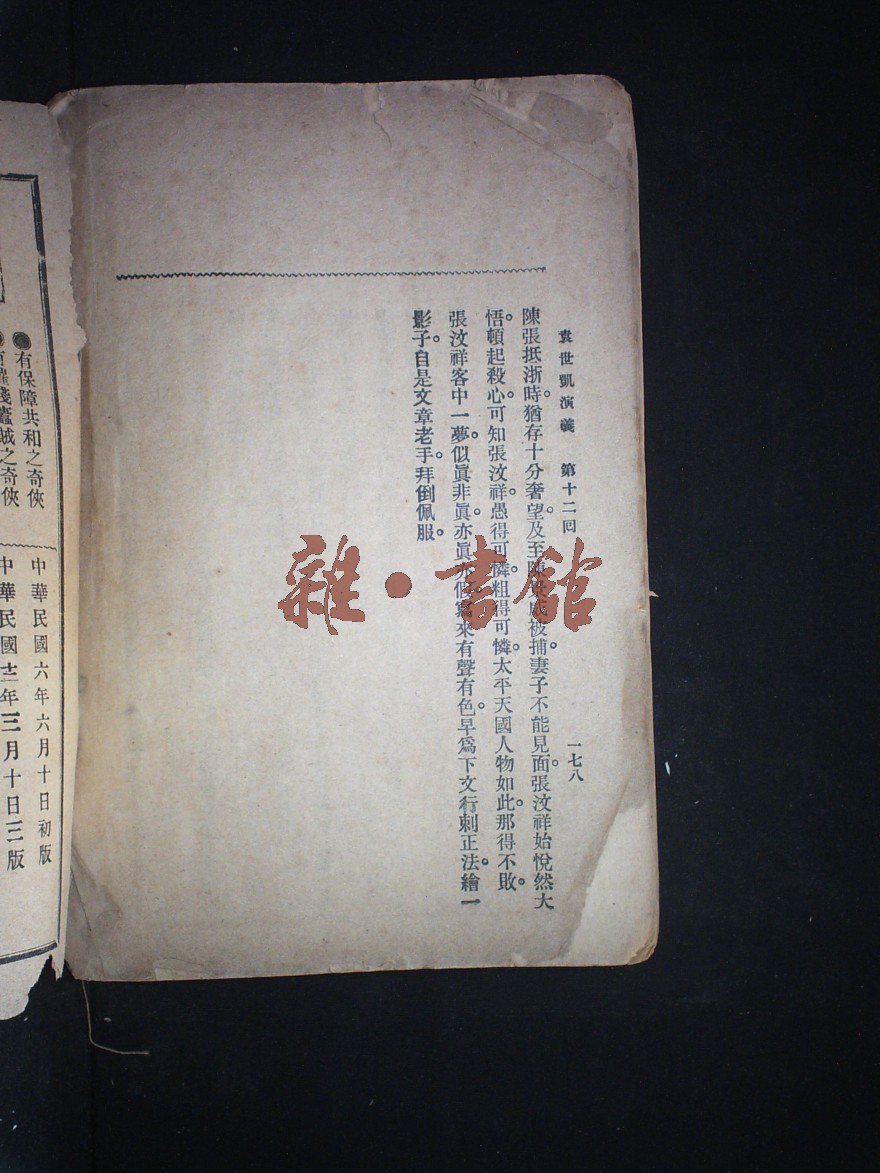 袁世凱演義　第十二回　一七八
陳張抵浙時。猶存十分奢望。及至陳被捕。妻子不能見面。張汶祥始悅然大
悟。頓起殺心。可知張汶祥。愚得可憐。粗得可憐。太平天國人物如此。那得不敗。
張汶祥客中一夢。似眞非眞。亦眞亦假。寫來有聲有色。早爲下文行刺正法。繪一
影子。自是文章老手。拜倒佩服。
雜·書館
●有保障共和之奇俠
賊之奇俠
中華民國六年六月十日初版
中華民國十二年三月十日三版